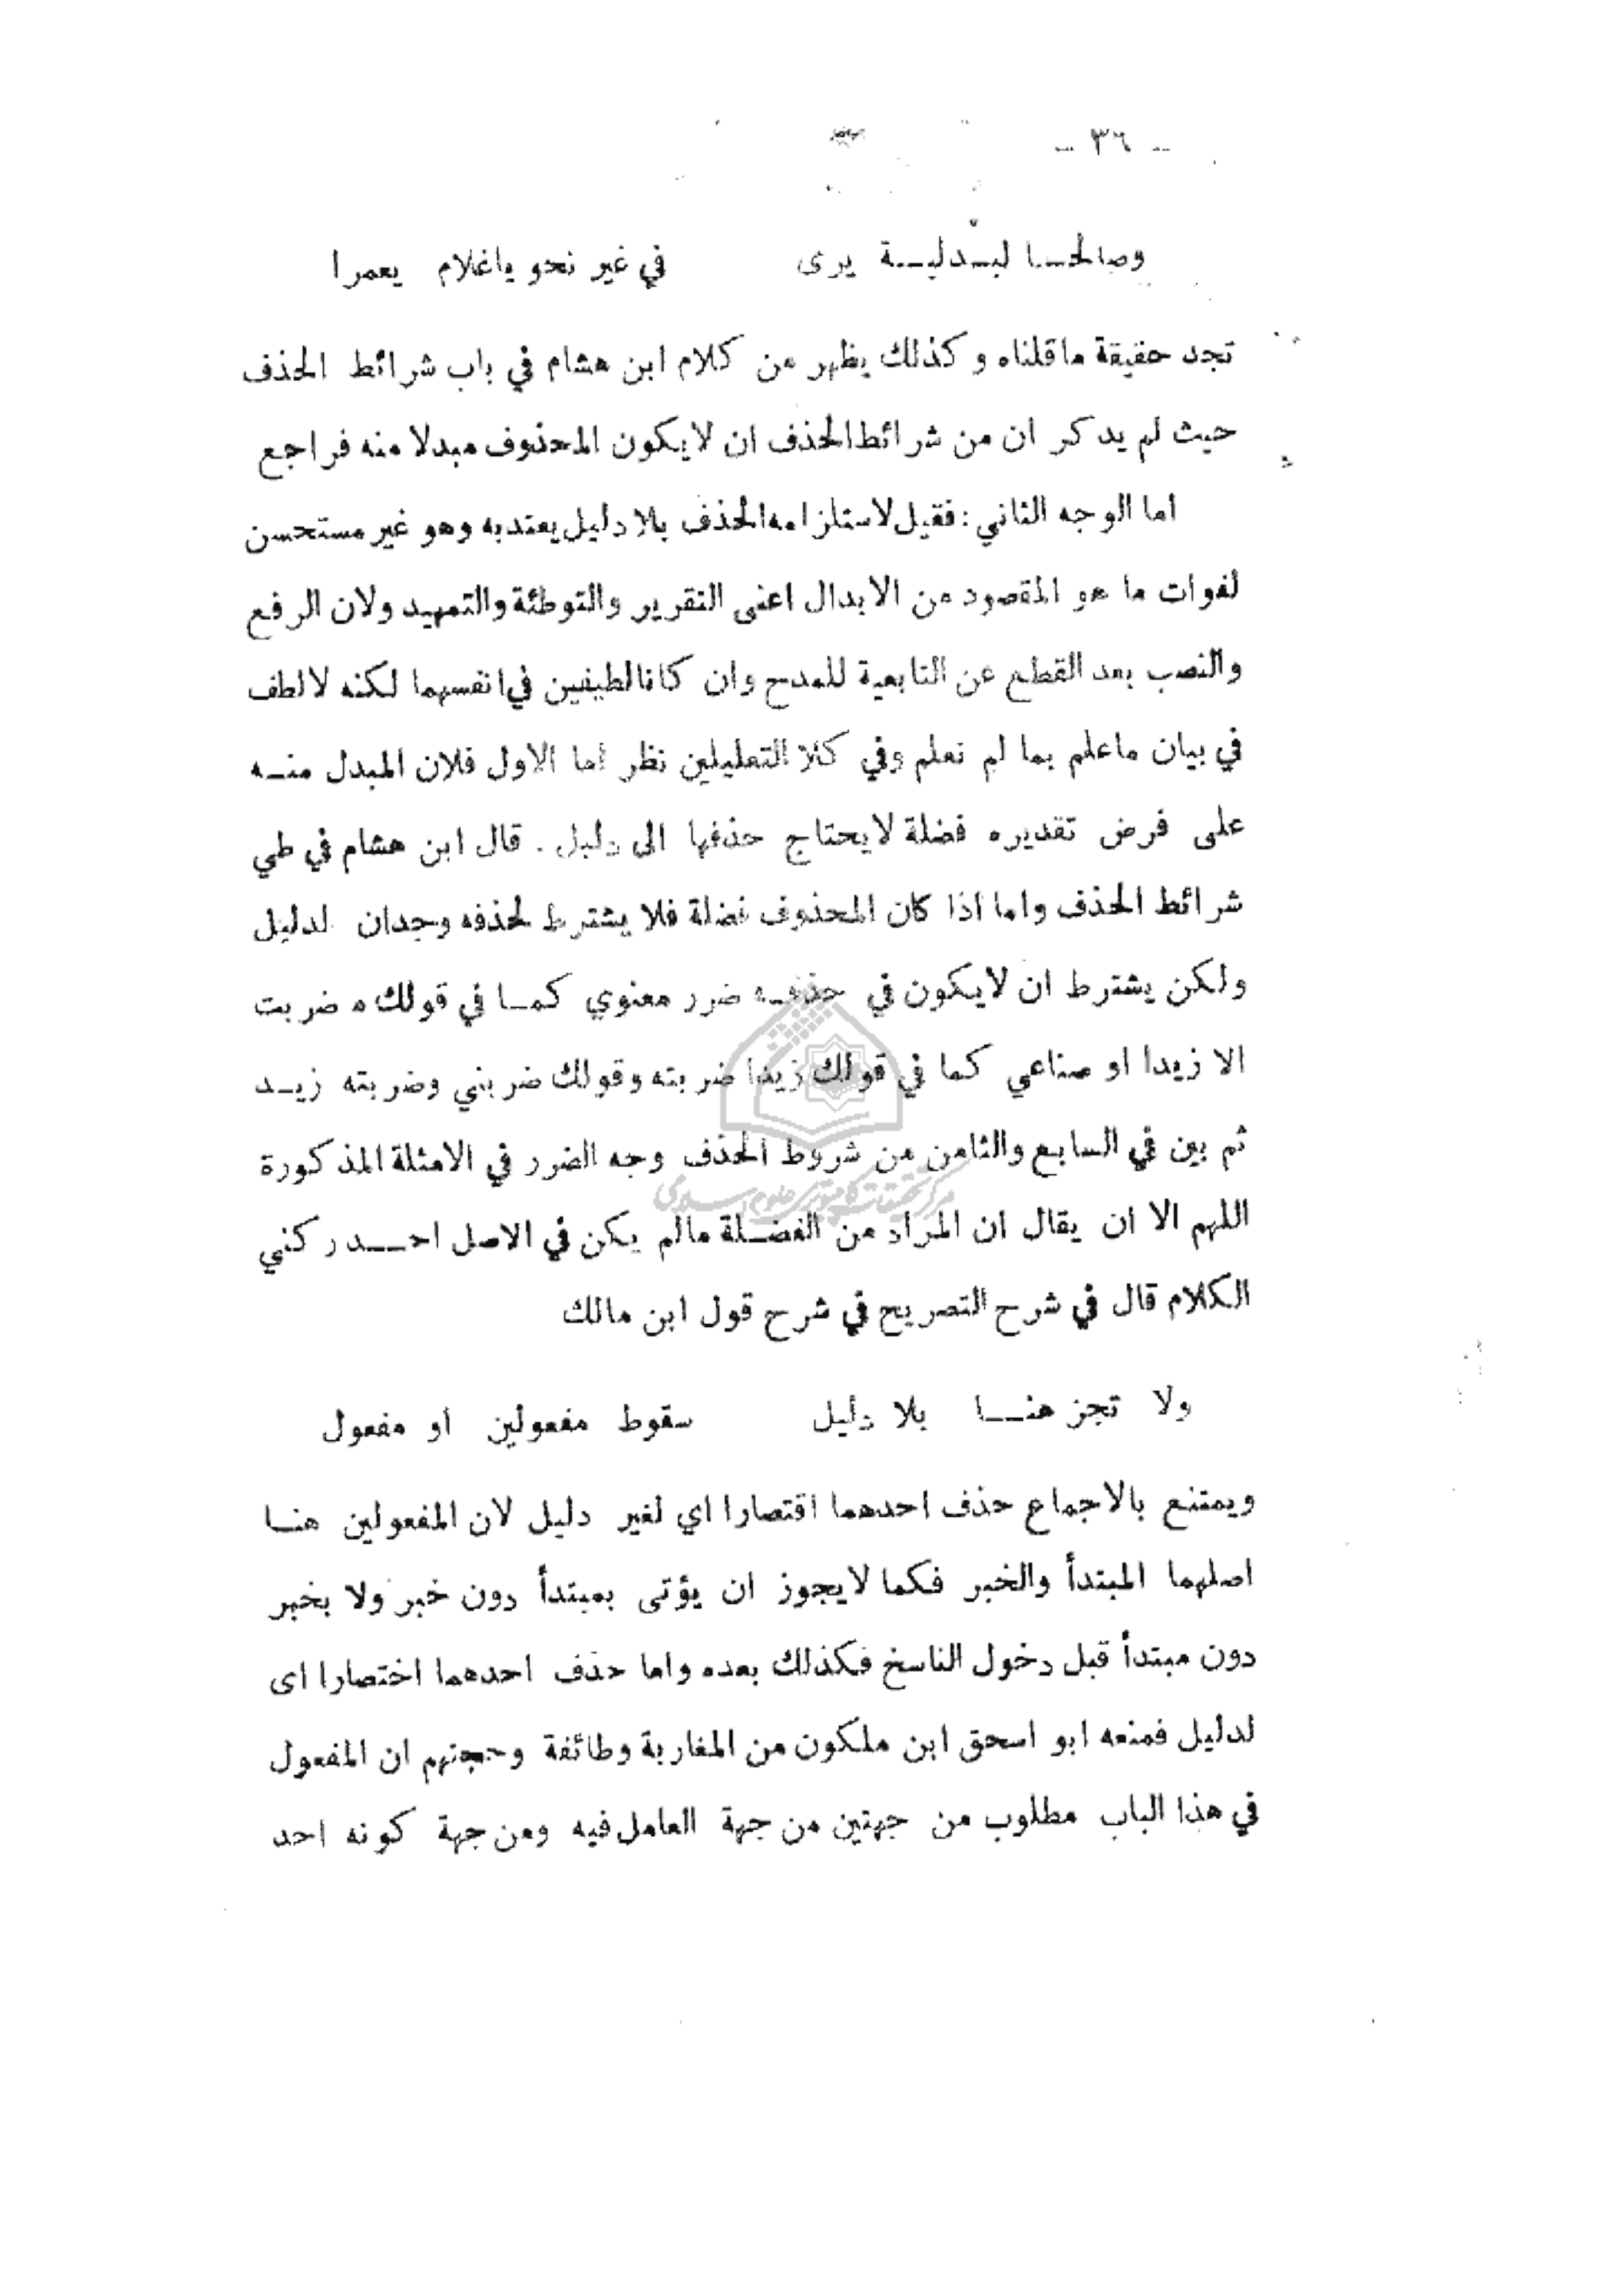 - ٣٦ -
وصالحـا لبـدليـة يرى في غير نحو ياغلام يعمرا
تجد حقيقة ماقلناه وكذلك يظهر من كلام ابن هشام في باب شرائط الحذف
حيث لم يدكر ان من شرائط الحذف ان لايكون المحذوف مبدلا منه فراجع
اما الوجه الثاني : فقيل لاستلزامه الحذف بلا دليل يعتد به وهو غير مستحسن
لفوات ما هو المقصود من الابدال اعنى التقرير والتوطئة والتمهيد ولان الرفع
والنصب بعد القطع عن التابعية للمدح وان كانا لطيفين في انفسهما لكنه لا لطف
في بيان ماعلم بما لم نعلم وفي كلا التعليلين نظر اما الاول فلان المبدل منـه
على فرض تقديره فضلة لايحتاج حذفها الى دليل . قال ابن هشام في طي
شرائط الحذف واما اذا كان المحذوف فضلة فلا يشترط لحذفه وجدان لدليل
ولكن يشترط ان لايكون في حذفـه ضرر معنوي كمـا في قولك ه ضربت
الا زيدا او صناعي كما في قولك زيدا ضربته وقولك ضربني وضربته زيـد
ثم بين في السابع والثامن من شروط الحذف وجه الضرر في الامثلة المذكورة
اللهم الا ان يقال ان المراد من الفضـلة مالم يكن في الاصل احـد ركني
الكلام قال في شرح التصريح في شرح قول ابن مالك
ولا تجز هنـا بلا دليل سقوط مفعولين او مفعول
ويمتنع بالاجماع حذف احدهما اقتصارا اي لغير دليل لان المفعولين هنـا
اصلهما المبتدأ والخبر فكما لايجوز ان يؤتى بمبتدأ دون خبر ولا بخبر
دون مبتدأ قبل دخول الناسخ فكذلك بعده واما حذف احدهما اختصارا اى
لدليل فمنعه ابو اسحق ابن ملكون من المغاربة وطائفة وحجتهم ان المفعول
في هذا الباب مطلوب من جهتين من جهة العامل فيه ومن جهة كونه احد
مركز تحقيقات كامپيوترى علوم اسلامى